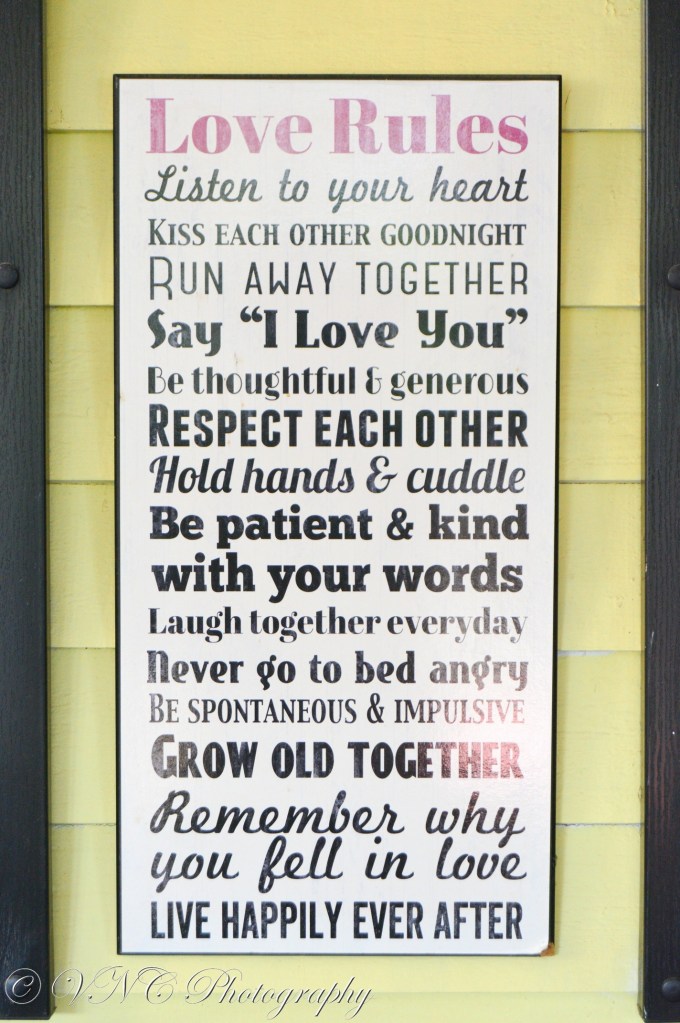 Love Rules
Listen to your heart
KISS EACH OTHER GOODNIGHT
RUN AWAY TOGETHER
Say “I Love You”
Be thoughtful & generous
RESPECT EACH OTHER
Hold hands & cuddle
Be patient & kind
with your words
Laugh together everyday
Never go to bed angry
BE SPONTANEOUS & IMPULSIVE
GROW OLD TOGETHER
Remember why
you fell in love
LIVE HAPPILY EVER AFTER
© VNC Photography